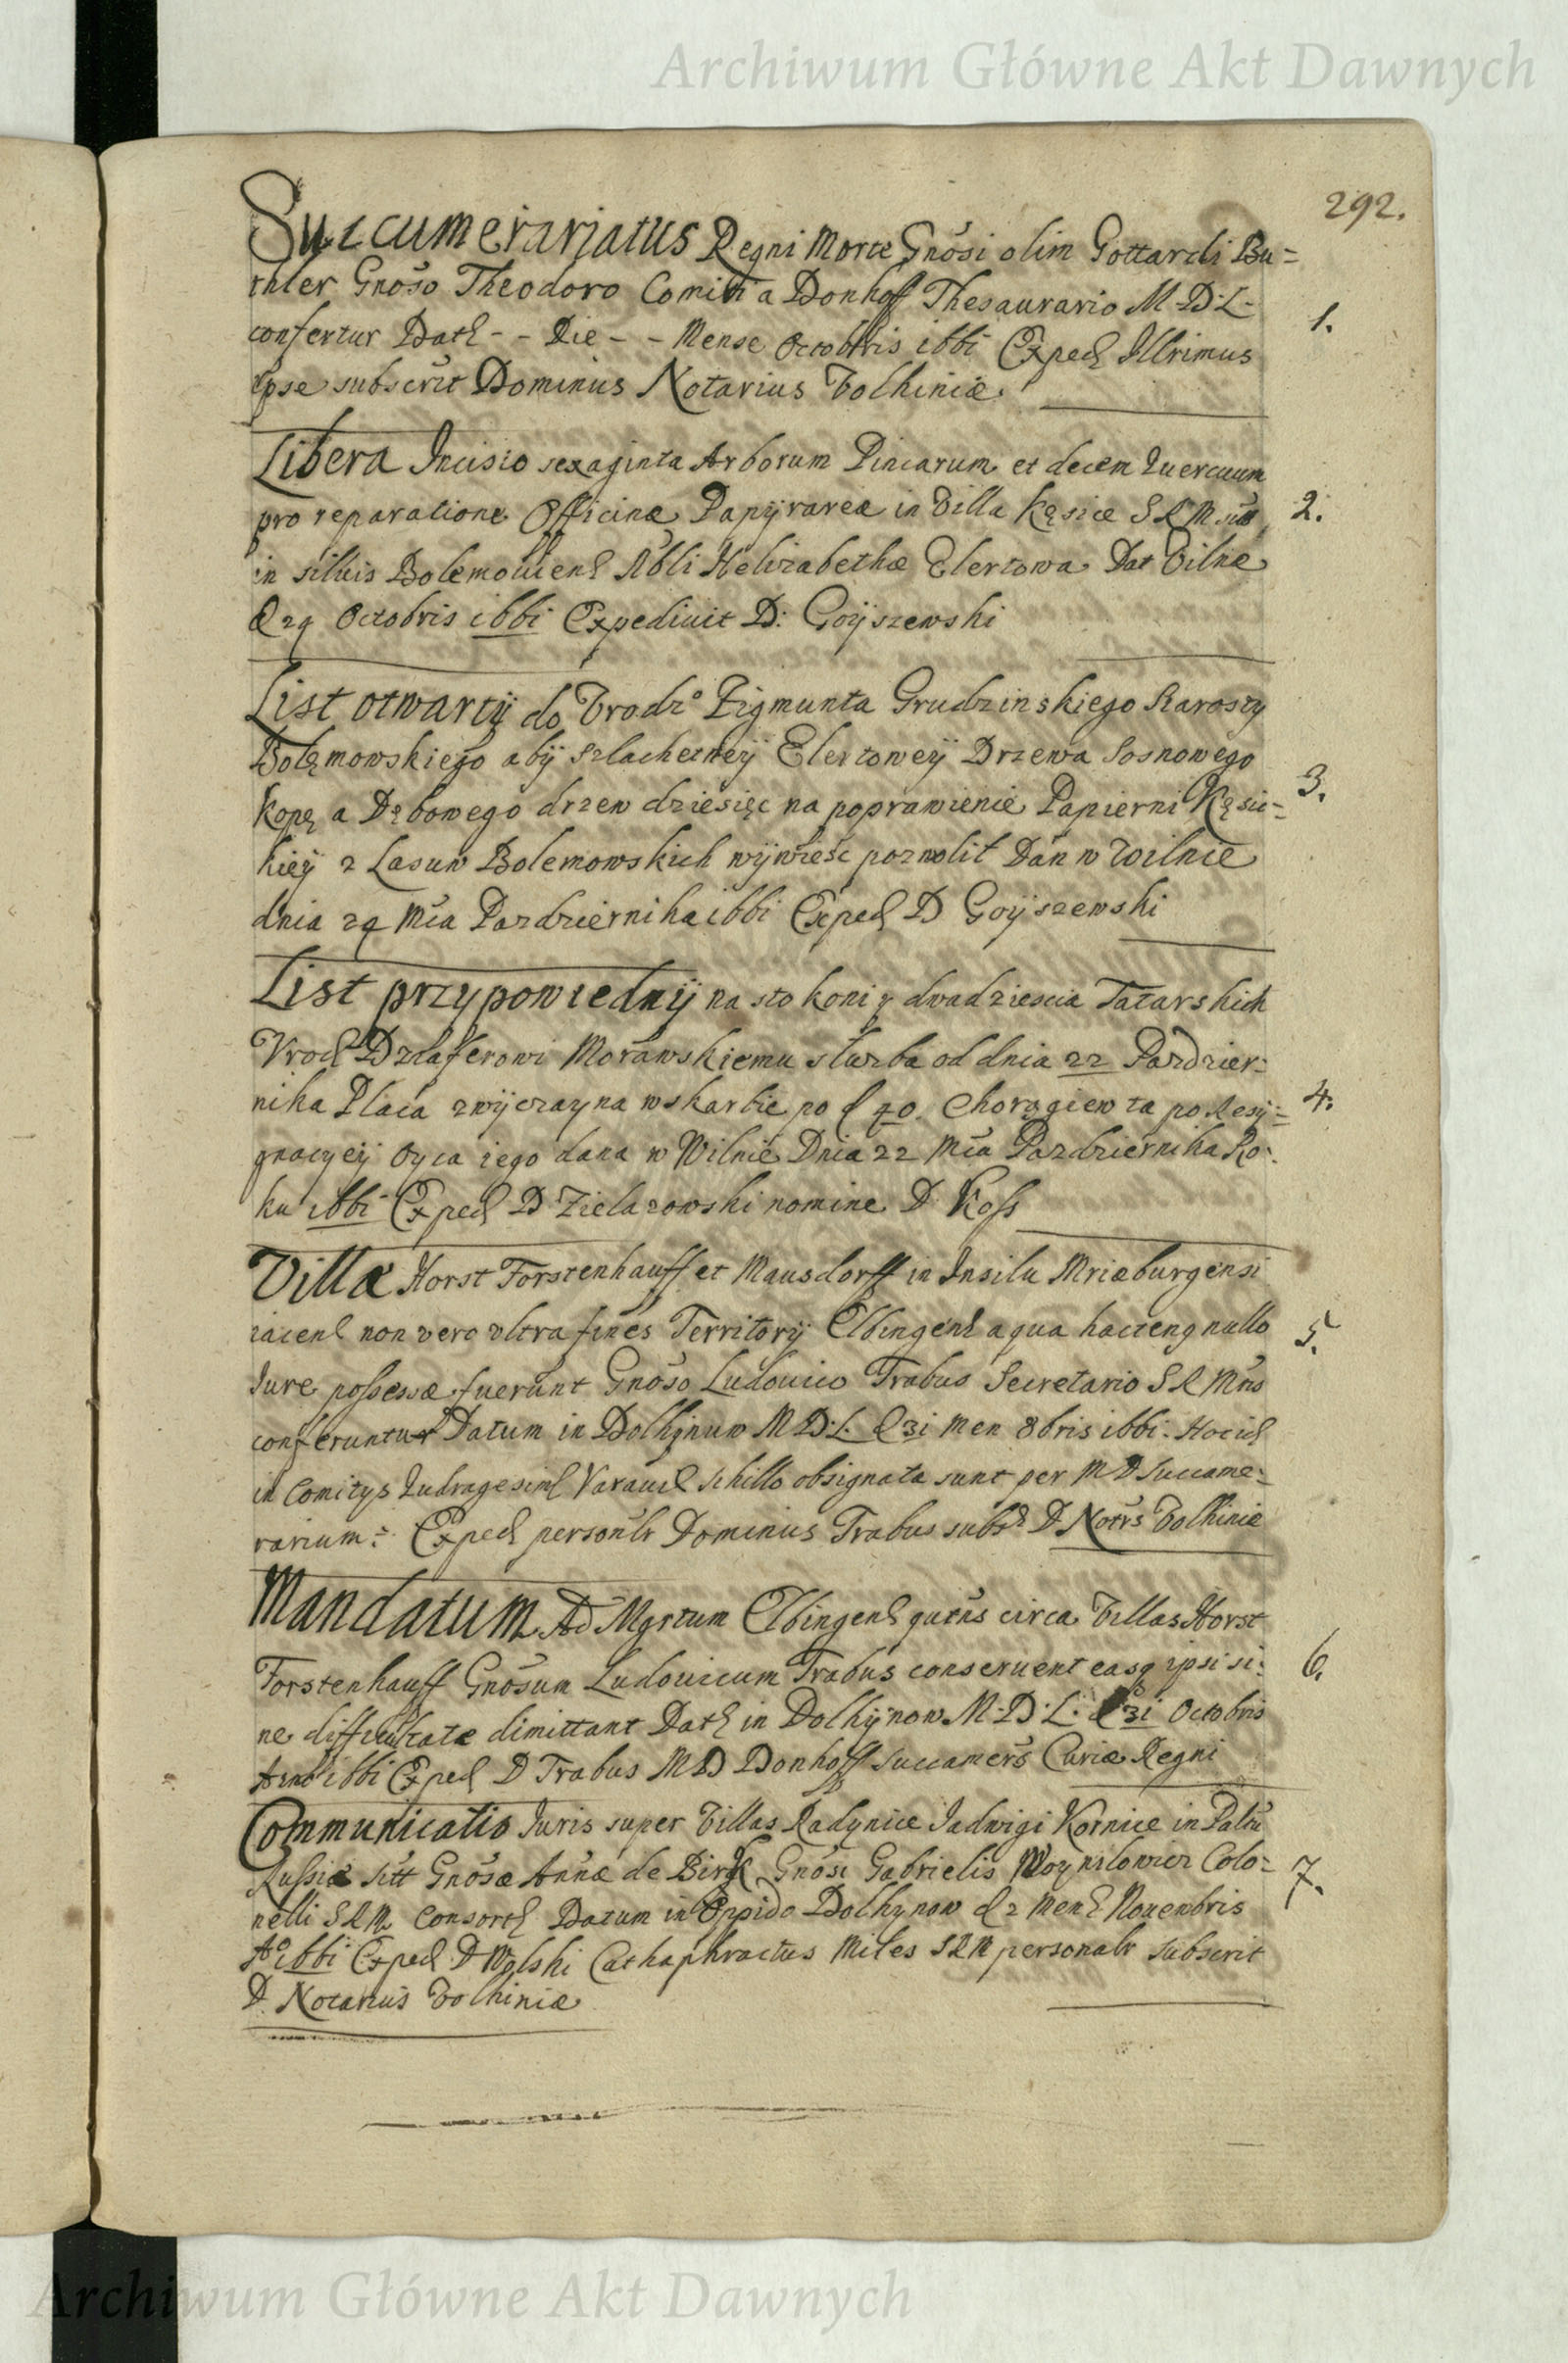 Archiwum Główne Akt Dawnych
292.
Succumerariatus Regni Morte Gnosi olim Gottardi Bu=
thler Gnoso Theodoro Comiti a Donhoff Thesaurario M. D. L.
1.
confertur Dath - - Die - - Mense Octobris ibbi Exped Illrimus
ipse subscrit Dominus Notarius Volhiniæ.
Libera Incisio sexaginta Arborum Pinearum et decem Quercuum
pro reparatione Officinæ Papyrareæ in Villa Kęsice S R M
2.
in silvis Bolemoviens Nobli Helizabethæ Elertowa Dat Vilnæ
d 29 Octobris ibbi Expedivit D: Goyszewski
List otwartÿ do Vrodzo Zigmunta Grudzinskiego Starosty
Bolęmowskiego abÿ szlachetneÿ Elertoweÿ Drzewa Sosnowego
kopę a Dębowego drzew dziesięc na poprawienie Papierni Kęsic=
3.
kieÿ z Lasuw Bolemowskich wÿwiesc pozwolił Dan w Wilnie
dnia 29 Mca Pazdziernika ibbi Exped D Goÿszewski
List przypowiednÿ na sto koni y dwadziescia Tatarskich
Vrod Dzdaferowi Morawskiemu służba od dnia 22 Pazdzier=
nika Płaca zwÿczayna w skarbie po f 40. Chorągiew ta po Resÿ=
4.
gnacyeÿ Oyca iego dana w Wilnie Dnia 22 Mca Pazdziernika Ro=
ku ibbi Exped D Zielazowski nomine D Koss
Villæ Horst Forstenhauff et Mausdorff in Insilu Mriæburgensi
iacens non vero vltra fines Territory Elbingens a qua hactenq nullo
5.
Iure possessæ fuerunt Gnoso Ludovico Trabus Secretario S R Mtis
conferuntur Datum in Dolhÿnuw M D. L. d 31 Men 8bris ibbi.
in Comitys obsignata sunt per M D Succame=
rarium: Exped personlr Dominus Trabus subst D Notrs Volhiniæ
Mandatum Ad Mgrtum Elbingens qutns circa Villas Horst
Forstenhauff Gnosum Ludovicum Trabus conservent easq ipsi si=
6.
ne difficultate dimittant Dath in Dolhÿnow M. D. L. d 31 Octobris
Anno ibbi Exped D Trabus M D Donhoff Succamers Curiæ Regni
Communicatio Iuris super Villas Radynice Jadwigi Kornice in Paltu
Russiæ sitt Gnosæ Annæ de Birk Gnosi Gabrielis Woynilowicz Colo=
7.
nelli S R M Consorts Datum in Oppido Dolhynow d 2 Mens Novembris
Ao ibbi Exped D Wolski Cathaphractus Miles S R M personalr subscrit
D. Notarius Volhiniæ
Archiwum Główne Akt Dawnych